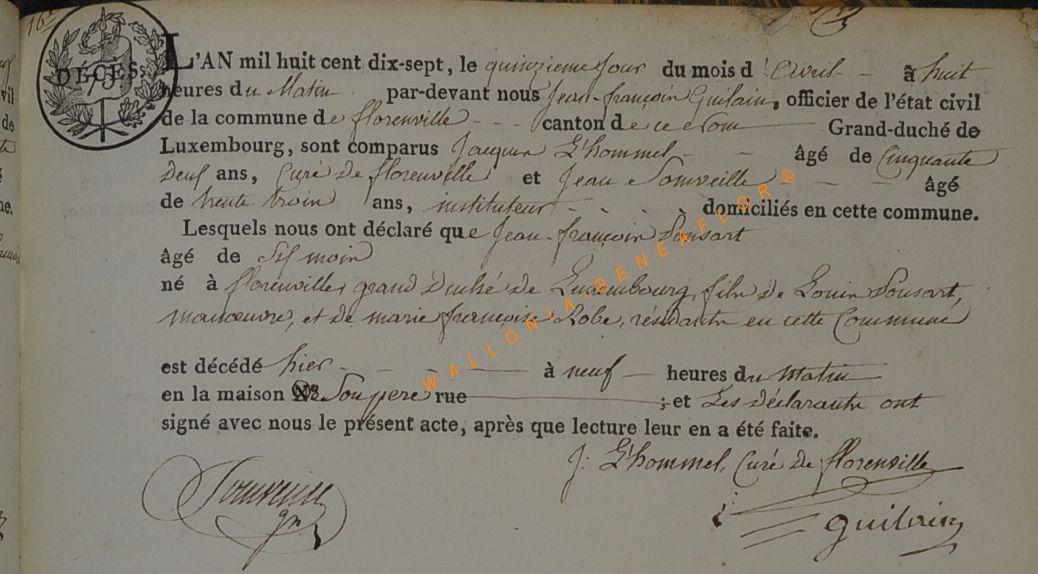 16e
DÉCÈS.
L'AN mil huit cent dix-sept, le quinzieme jour du mois d'Avril à huit
heures du Matin par-devant nous Jean-françois Guilain, officier de l'état civil
de la commune de florenville canton de ce nom Grand-duché de
Luxembourg, sont comparus Jacques L'hommel âgé de Cinquante
deux ans, Curé de florenville et Jean Somveille âgé
de trente trois ans, instituteur domiciliés en cette commune.
Lesquels nous ont déclaré que Jean-françois Ponsart
âgé de six mois
né à florenville, grand Duché de Luxembourg, fils de Louis Ponsart,
manœuvre, et de marie françoise Robe, résidants en cette Commune
est décédé hier à neuf heures du Matin
en la maison de Son pere rue ; et Les déclarants ont
signé avec nous le présent acte, après que lecture leur en a été faite.
J: L'hommel, Curé de florenville
guilain
WALLONIA-GENEAFLOR®